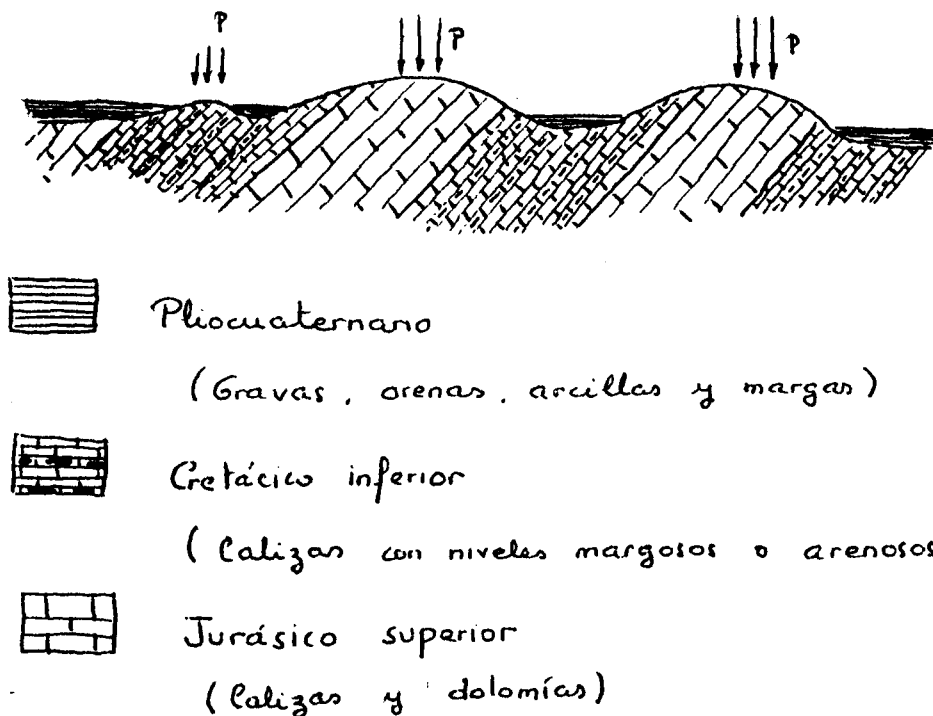 P P P
Pliocuaternano
(Gravas, arenas, arcillas y margas)
Cretácico inferior
(Calizas con niveles margosos o arenosos
Jurásico superior
(Calizas y dolomías)